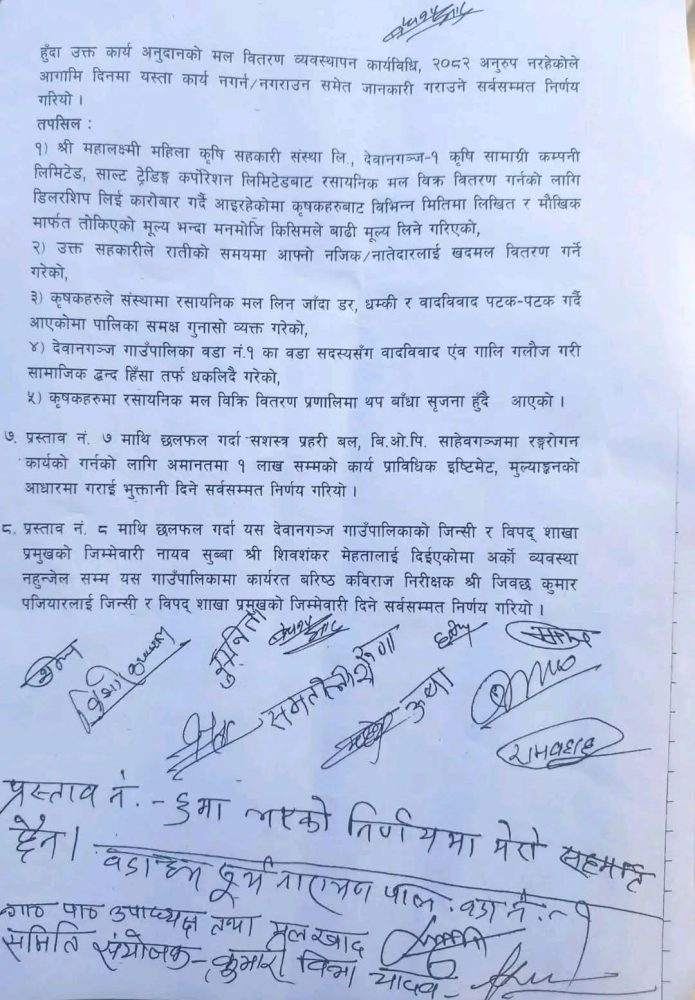 हुँदा उक्त कार्य अनुदानको मल वितरण व्यवस्थापन कार्यविधि, २०८२ अनुरुप नरहेकोले
आगामि दिनमा यस्ता कार्य नगर्न/नगराउन समेत जानकारी गराउने सर्वसम्मत निर्णय
गरियो ।
तपसिल :
१) श्री महालक्ष्मी महिला कृषि सहकारी संस्था लि., देवानगञ्ज-१ कृषि सामाग्री कम्पनी
लिमिटेड, साल्ट ट्रेडिङ्ग कर्पोरेशन लिमिटेडबाट रसायनिक मल विक्र वितरण गर्नको लागि
डिलरशिप लिई कारोबार गर्दै आइरहेकोमा कृषकहरुबाट विभिन्न मितिमा लिखित र मौखिक
मार्फत तोकिएको मूल्य भन्दा मनमोजि किसिमले बाढी मूल्य लिने गरिएको,
२) उक्त सहकारीले रातीको समयमा आफ्नो नजिक/नातेदारलाई खदमल वितरण गर्ने
गरेको,
३) कृषकहरुले संस्थामा रसायनिक मल लिन जाँदा डर, धम्की र वादविवाद पटक-पटक गर्दै
आएकोमा पालिका समक्ष गुनासो व्यक्त गरेको,
४) देवानगञ्ज गाउँपालिका वडा नं.१ का वडा सदस्यसँग वादविवाद एंव गालि गलौज गरी
सामाजिक द्वन्द हिँसा तर्फ धकलिदै गरेको,
५) कृषकहरुमा रसायनिक मल विक्रि वितरण प्रणालिमा थप बाँधा सृजना हुँदै आएको ।
७. प्रस्ताव नं. ७ माथि छलफल गर्दा सशस्त्र प्रहरी बल, बि.ओ.पि. साहेवगञ्जमा रङ्गरोगन
कार्यको गर्नको लागि अमानतमा १ लाख सम्मको कार्य प्राविधिक इष्टिमेट, मुल्याङ्कनको
आधारमा गराई भुक्तानी दिने सर्वसम्मत निर्णय गरियो ।
८. प्रस्ताव नं. ८ माथि छलफल गर्दा यस देवानगञ्ज गाउँपालिकाको जिन्सी र विपद् शाखा
प्रमुखको जिम्मेवारी नायव सुब्बा श्री शिवशंकर मेहतालाई दिईएकोमा अर्को व्यवस्था
नहुन्जेल सम्म यस गाउँपालिकामा कार्यरत बरिष्ठ कविराज निरीक्षक श्री जिवछ कुमार
पजियारलाई जिन्सी र विपद् शाखा प्रमुखको जिम्मेवारी दिने सर्वसम्मत निर्णय गरियो ।
सुनिता
उषा
प्रस्ताव नं. - ६मा भएको निर्णयमा मेरो सहमति
छैन।
वडाध्यक्ष सूर्य नारायण पाल वडा नं.
गा० पा० उपाध्यक्ष तथा मलखाद
समिति संयोजक - कुमारी विभा यादव